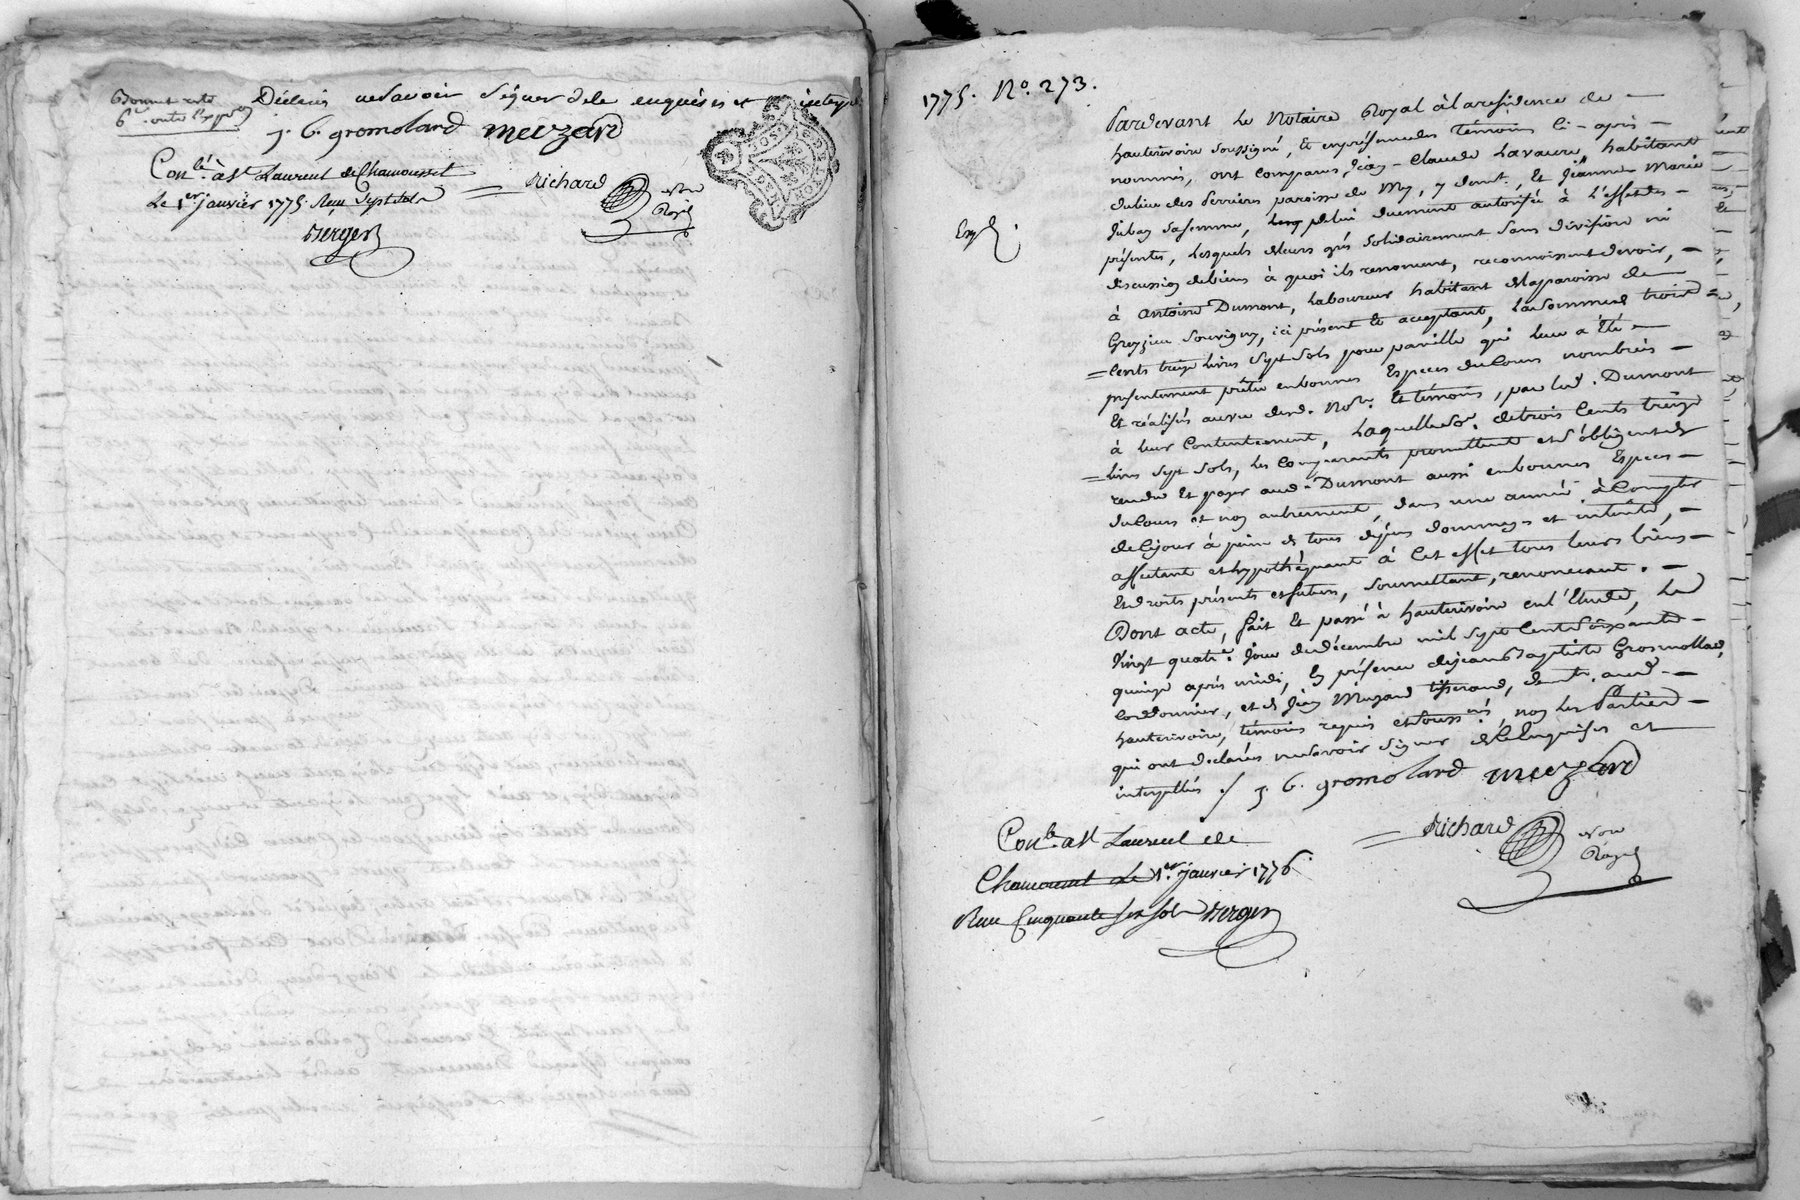 Déclaré ne savoir signer de ce enquis et interp.
J. B. gromolard meuzard
Con.lé à St Laurent de Chamousset
Le 1er janvier 1775. Reçu sept sols
Berger
Richard no.re Royal
1775. No. 273.
Pardevant Le Notaire Royal à la résidence de
hauterivoire soussigné, et en présence des témoins ci-après
nommés, ont comparus, jean-Claude Lavaure habitant
du lieu des Serrieres paroisse de My, y demt., Et jeanne Marie
sa femme, de lui duement autorisée à l'effet des
présentes, Lesquels de leurs grés solidairement sans division ni
discussion de biens à quoi ils renoncent, reconnoissent devoir,
à antoine Dumont, Laboureur habitant de la paroisse de
Greyzieu Souvigny, ici présent et acceptant, La somme de trois
Cents treize Livres sept sols pour pareille qui leur a Eté
présentement prêtée en bonnes Especes du Cours nombrées
Et réalisés au vu dud. Nore. Et témoins, par led. Dumont
à leur Contentement, Laquelle so.e de trois Cents treize
Livres sept sols, les Comparants promettent et s'obligent de
rendre Et payer aud. Dumont aussi en bonnes Especes
du Cours et non autrement, dans une année à Compter
de Ce jour à peine de tous dépens dommages et intérêts,
affectant et hypothéquant à Cet effet tous leurs biens
Et droits présents et futurs, soumettant, renoncant.
Dont acte, fait Et passé à hauterivoire en l'Etude, Le
Vingt quatre. jour de décembre mil sept Cents soixante
quinze après midi, En présence de jean Baptiste Gromollard,
Cordonnier, et de jean Muzard tisserand, demts. aud.
hauterivoire, témoins requis et souss.nés, non les Parties
qui ont déclarés ne savoir signer de Ce Enquises et
interpellées ./ J. B. gromolard meuzard
Con.lé à St Laurent de
Chamousset Le 1er janvier 1776.
Reçu Cinquante six sols Berger
Richard no.re Royal